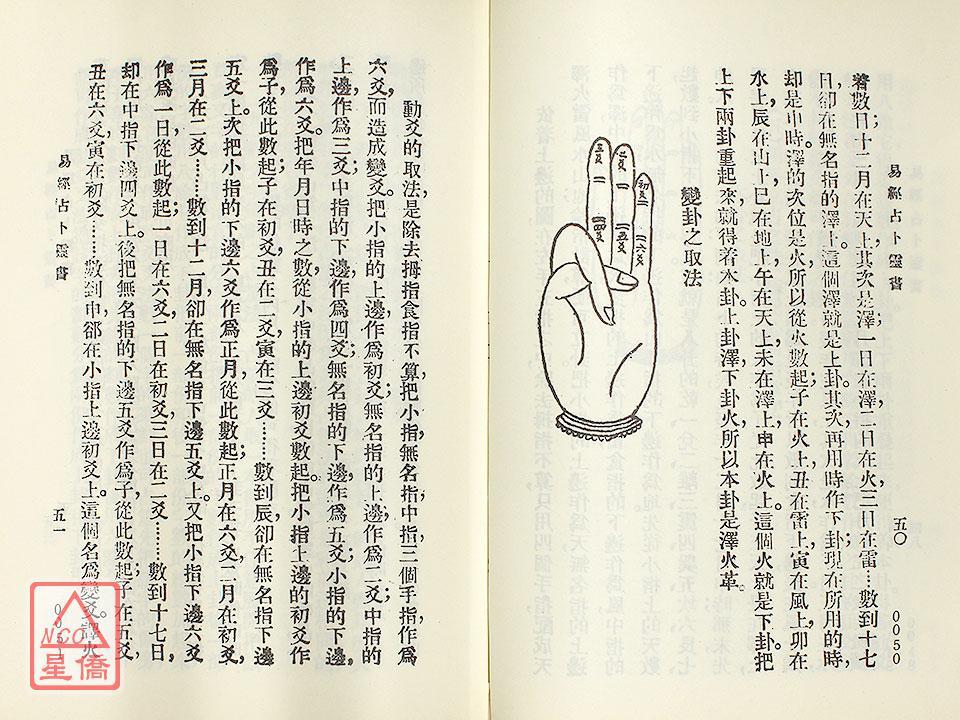 着數日十二月在天上其次是澤一日在澤二日在火三日在雷…數到十七
日卻在無名指的澤上。這個澤就是上卦。其次再用時作下卦現在所用的時,
却是申時。澤的次位是火所以從火數起子在火上丑在雷上寅在風上卯在
水上,辰在山上巳在地上午在天上未在澤上申在火上。這個火就是下卦。把
上下兩卦重起來,就得着本卦。上卦澤下卦火所以本卦是澤火革。
變卦之取法
初爻
二爻
三爻
六爻
五爻
四爻
易經占卜靈書
五〇
0050
動爻的取法,是除去拇指食指不算,把小指,無名指,中指三個手指,作爲
六爻,而造成變爻。把小指的上邊,作爲初爻;無名指的上邊,作爲二爻;中指的
上邊,作爲三爻;中指的下邊,作爲四爻;無名指的下邊,作爲五爻;小指的下邊,
作爲六爻。把年月日時之數,從小指的上邊初爻數起。把小指上邊的初爻作
爲子從此數起;子在初爻,丑在二爻,寅在三爻……數到辰卻在無名指下邊
五爻上。次把小指的下邊六爻作爲正月,從此數起;正月在六爻,二月在初爻,
三月在二爻……數到十二月,卻在無名指下邊五爻上。又把小指下邊六爻
作爲一日,從此數起;一日在六爻,二日在初爻,三日在二爻……數到十七日,
却在中指下邊四爻上。後把無名指的下邊五爻作爲子,從此數起;子在五爻,
丑在六爻,寅在初爻……數到申,卻在小指上邊初爻上。這個名爲變爻。澤火
易經占卜靈書
五一
0051
NCC
星僑